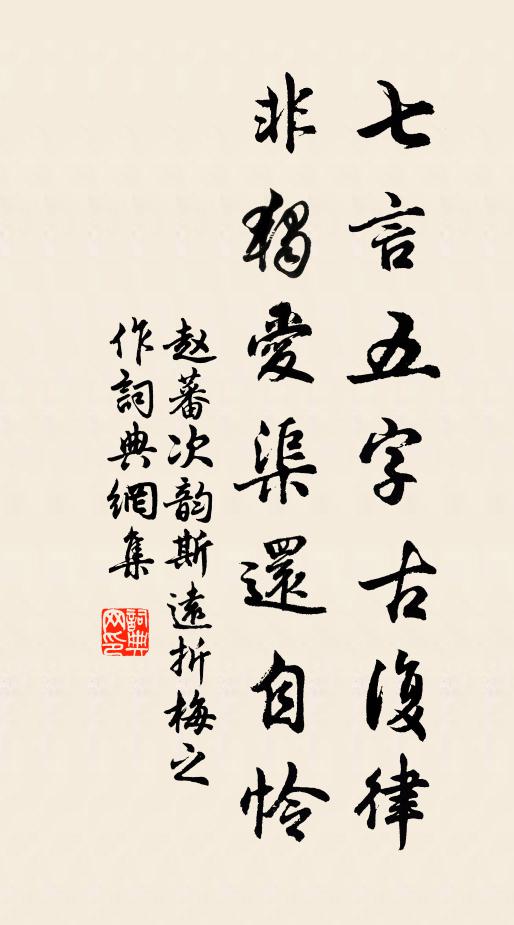 七言五字古復律
非獨愛渠還自怜
赵蕃次韵斯遠折梅之
作詞典網集
詞典网印